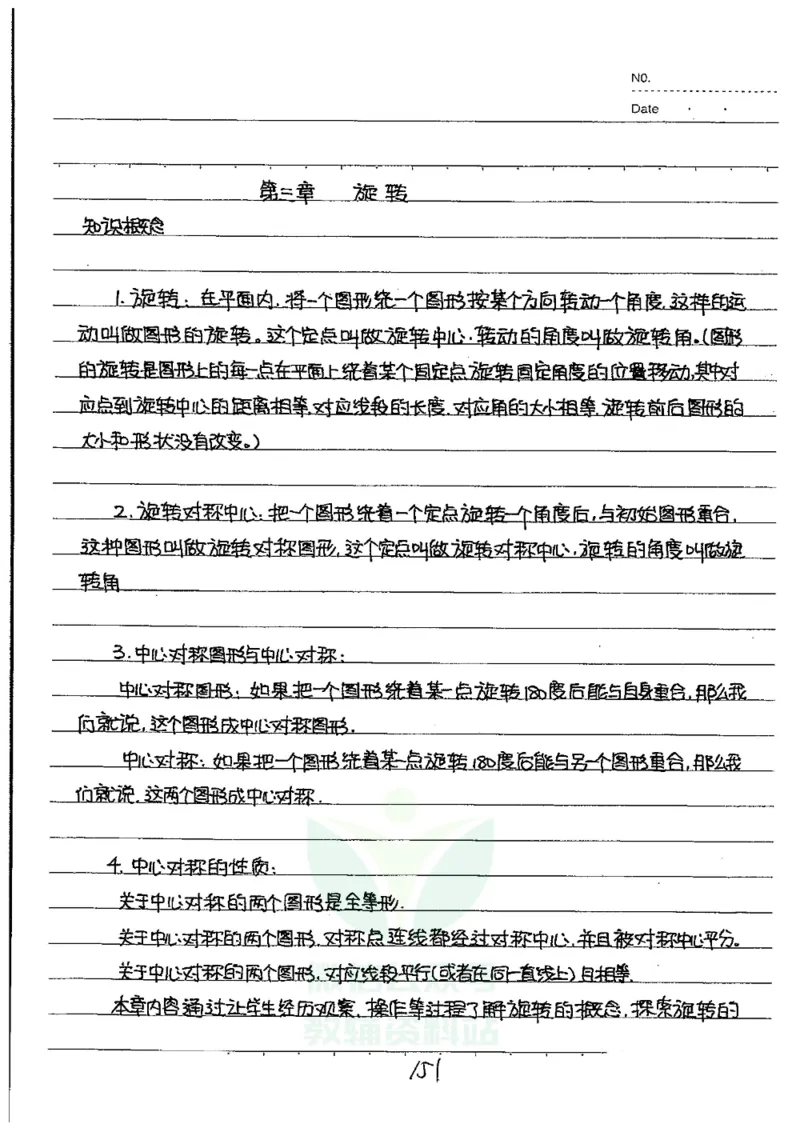 NO.
Date
第三章 旋转
知识概念
1. 旋转：在平面内，将一个图形绕一个图形按某个方向转动一个角度，这样的运
动叫做图形的旋转。这个定点叫做旋转中心，转动的角度叫做旋转角。(图形
的旋转是图形上的每一点在平面上绕着某个固定点旋转固定角度的位置移动，其中对
应点到旋转中心的距离相等，对应线段的长度、对应角的大小相等，旋转前后图形的
大小和形状没有改变。)
2. 旋转对称中心：把一个图形绕着一个定点旋转一个角度后，与初始图形重合，
这种图形叫做旋转对称图形，这个定点叫做旋转对称中心，旋转的角度叫做旋
转角
3. 中心对称图形与中心对称：
中心对称图形：如果把一个图形绕着某一点旋转180度后能与自身重合，那么我
们就说，这个图形成中心对称图形.
中心对称：如果把一个图形绕着某一点旋转180度后能与另一个图形重合，那么我
们就说，这两个图形成中心对称.
4. 中心对称的性质：
关于中心对称的两个图形是全等形.
关于中心对称的两个图形，对称点连线都经过对称中心，并且被对称中心平分。
关于中心对称的两个图形，对应线段平行(或者在同一直线上)且相等.
本章内容通过让学生经历观察、操作等过程了解旋转的概念，探索旋转的
教辅资料站
151